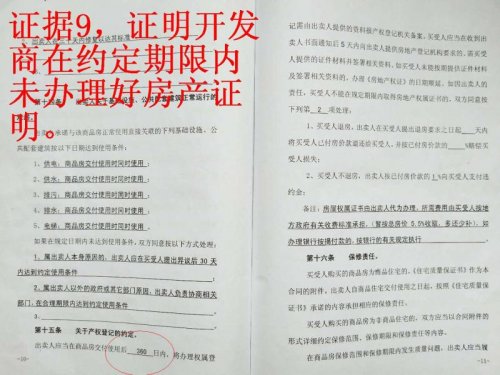 证据9，证明开发
商在约定期限内
未办理好房产证
明。
卖人承诺与该商品房正常使用直接关联的下列基础设施、公
共配套建筑按以下日期达到使用条件：
1、供电：商品房交付使用时同时使用；
2、供水：商品房交付使用时同时使用；
3、排污：商品房交付使用时同时使用；
4、供水：商品房交付使用时同时使用；
5、电梯：商品房交付使用时同时使用；
如果在规定日期内未达到使用条件，双方同意按以下方式处理：
1、属出卖人本身原因的，出卖人应在买受人提出异议后30天
内达到约定使用条件
2、属出卖人以外的政府或其它部门原因，出卖人负责协商相关
部门，在合理期限内达到约定使用条件
3、
第十五条 关于产权登记的约定。
出卖人应当在商品房交付使用后 360 日内，将办理权属登
-10-
记需由出卖人提供的资料报产权登记机关备案。买受人应当在收到出
卖人书面通知后5天内向出卖人提供房地产登记机构要求的，需买受人
提供的证件材料并签署相关资料，如买受人未能按期提供证件材料
及签署相关资料的，办理《房地产权证》的日期顺延。如因出卖人的
责任，买受人不能在规定期限内取得房地产权属证书的，双方同意按
下列第 2 项处理：
1、买受人退房，出卖人在买受人提出退房要求之日起 天内
将买受人已付房价款退还给买受人，并按已付房价款的 %赔偿买
受人损失；
2、买受人不退房，出卖人按已付房价款的1%向买受人支付违
约金；
备注：房屋权属证书由出卖人代为办理，所需费用由买受人按地
方政府有关收费标准承担，（暂按总房价 5.5%收取，多还少补），如
办理银行按揭付款的，按银行的有关规定执行
第十六条 保修责任。
买受人购买的商品房为商品住宅的，《住宅质量保证书》作为本
合同的附件。出卖人自商品住宅交付使用之日起，按照《住宅质量保
证书》承诺的内容承担相应的保修责任。
买受人购买的商品房为非商品住宅的，双方应当以合同附件的
形式详细约定保修范围、保修期限和保修责任等内容。
在商品房保修范围和保修期限内发生质量问题，出卖人应当履
-11-